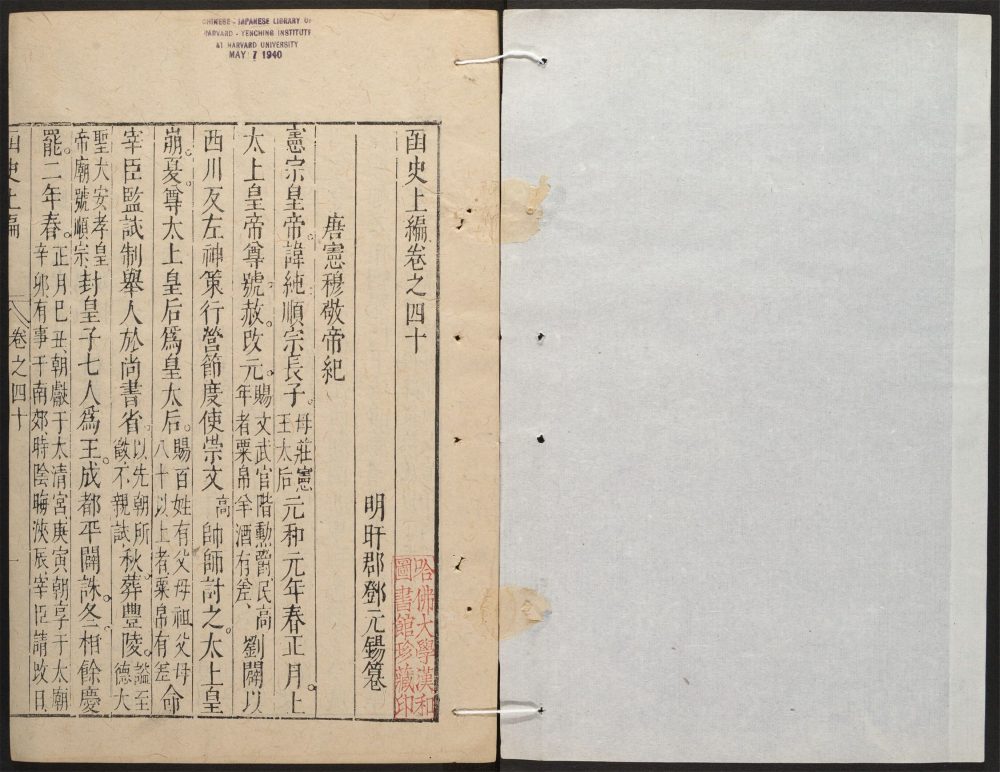 CHINESE - JAPANESE LIBRARY OF
HARVARD - YENCHING INSTITUTE
AT HARVARD UNIVERSITY
MAY 7 1940
函史上編卷之四十
明盱郡鄧元錫纂
唐憲穆敬帝紀
憲宗皇帝諱純順宗長子母莊憲王太后元和元年春正月上
太上皇帝尊號赦改元賜文武官階勳爵民高年者粟帛羊酒有差劉闢以
西川反左神策行營節度使崇文高帥師討之太上皇
崩夏尊太上皇后為皇太后賜百姓有父母祖父母八十以上者粟帛有差命
宰臣監試制舉人於尚書省以先朝所徵不親試秋葬豐陵謚至德大
聖大安孝皇帝廟號順宗封皇子七人為王成都平闢誅冬相餘慶
罷二年春正月巳丑朝獻于太清宮庚寅朝享于太廟辛卯有事于南郊時陰晦浹辰宰臣請改日
函史上編
卷之四十
一
哈佛大學漢和
圖書館珍藏印